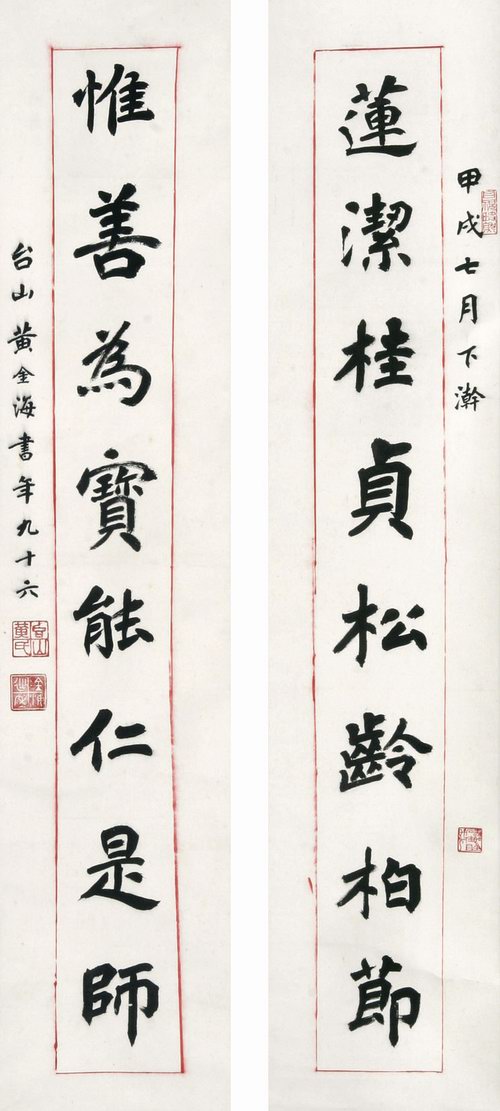 甲戌七月下澣
蓮潔桂貞松齡柏節
惟善為寶能仁是師
台山黃金海書年九十六
台山黃氏